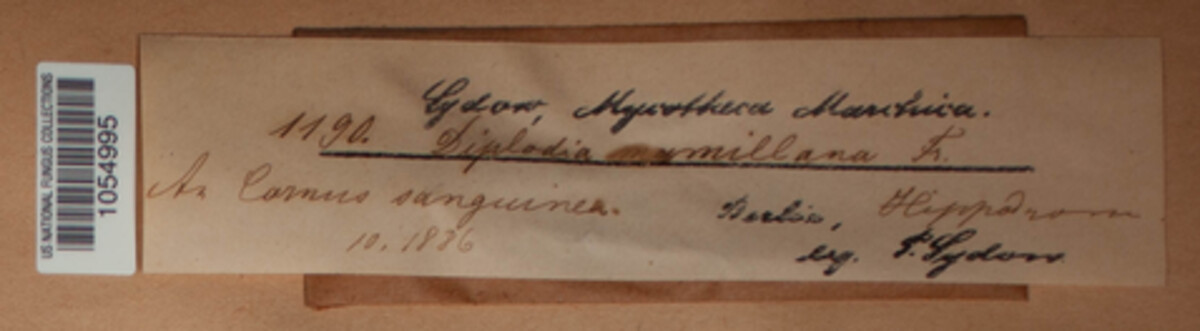 US NATIONAL FUNGUS COLLECTIONS
1054995
Sydow, Mycotheca Marchica.
1190. Diplodia mamillana Fr.
An Cornus sanguinea. Berlin, Hippodrom
10. 1886 leg. P. Sydow